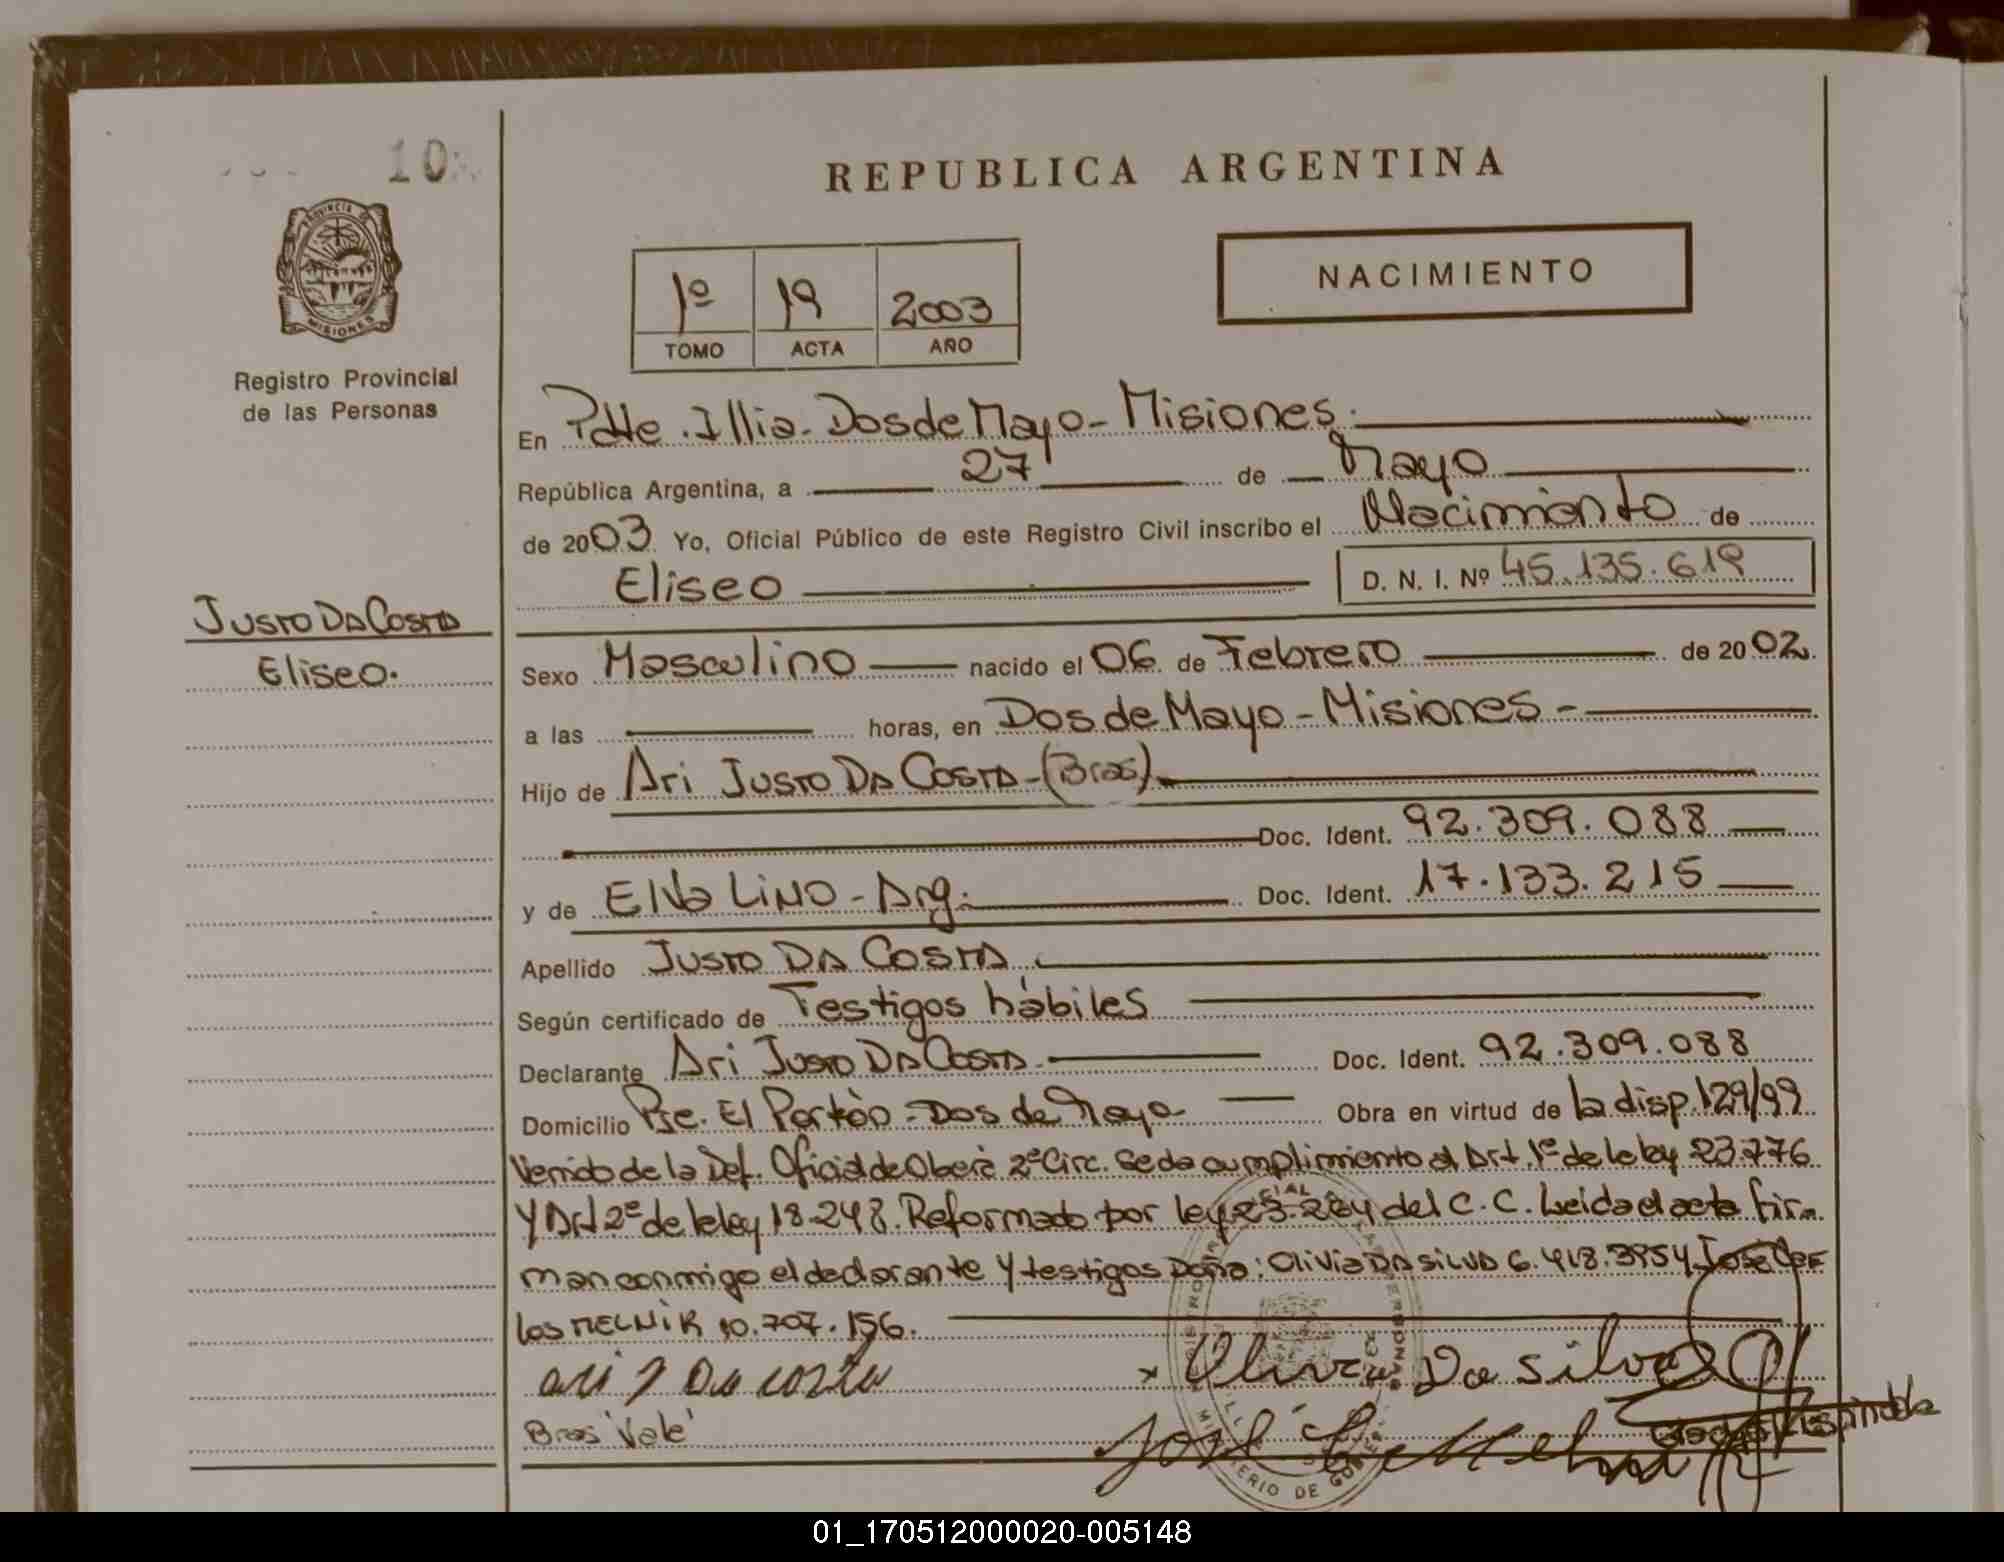 10
REPUBLICA ARGENTINA
PROVINCIA DE
MISIONES
Registro Provincial
de las Personas
1º 19 2003
TOMO ACTA AÑO
NACIMIENTO
En Pdte. Illia. Dos de Mayo - Misiones.
República Argentina, a 27 de Mayo
de 2003 Yo, Oficial Público de este Registro Civil inscribo el Nacimiento de
Eliseo D. N. I. Nº 45.135.619
Justo Da Costa
Eliseo.
Sexo Masculino nacido el 06 de Febrero de 2002.
a las horas, en Dos de Mayo - Misiones -
Hijo de Ari Justo Da Costa - (Bras)
Doc. Ident. 92.309.088
y de Elva Lino - Arg. Doc. Ident. 17.133.215
Apellido Justo Da Costa
Según certificado de Testigos hábiles
Declarante Ari Justo Da Costa. Doc. Ident. 92.309.088
Domicilio Pje. El Portón - Dos de Mayo Obra en virtud de la disp. 129/99
Venido de la Def. Oficial de Oberá 2º Circ. Se da cumplimiento al Art. 1º de la ley 23.776
Y Art 2º de la ley 18.248. Reformado por ley 23.264 del C. C. Leida el acta fir-
man conmigo el declarante y testigos Doña: Olivia Da Silva 6.418.395 y José Car
los Melnik 10.707.156.
ari J Da costa Olivia Da Silva
Bras 'Vale' José C Melnik
Espindola
MINISTERIO DE GOBIERNO
01_170512000020-005148